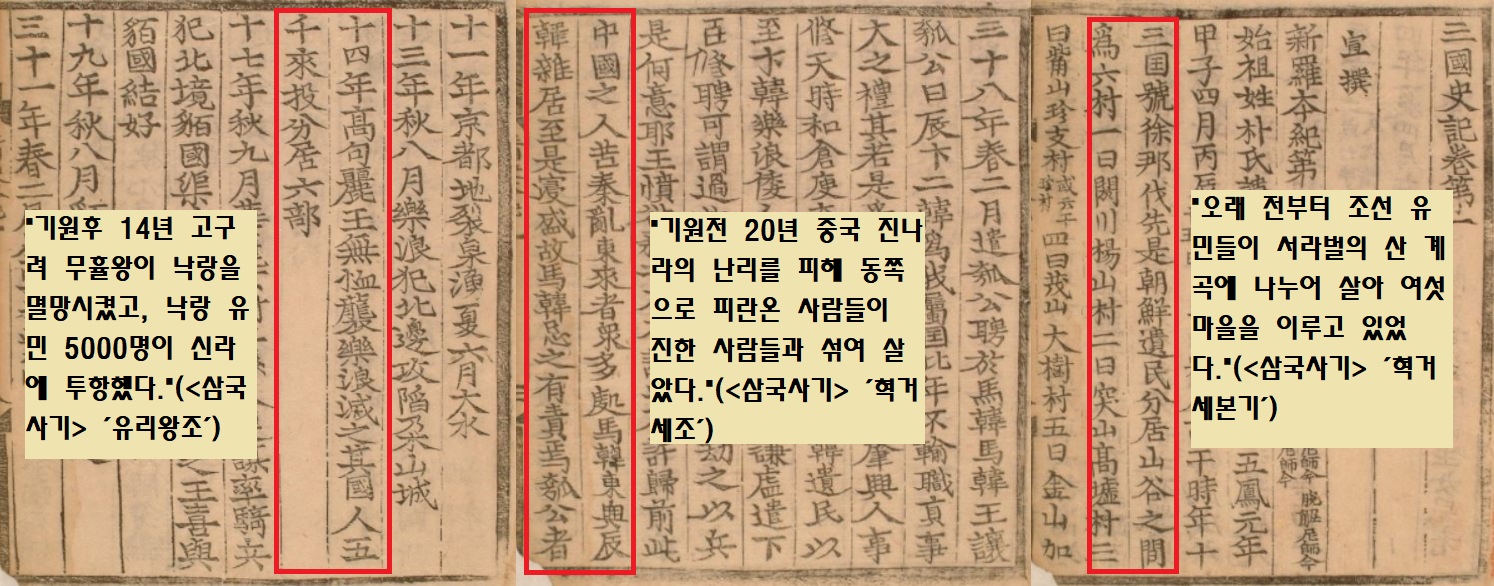 三國史記卷第一
宣撰
新羅本紀第
始祖姓朴氏諱 五鳳元年
甲子四月丙辰 千時年十
三国號徐那伐先是朝鮮遺民分居山谷之間
爲六村一曰閼川楊山村二曰突山高墟村三
曰觜山珍支村或云干珍村四曰茂山大樹村五曰金山加
"오래 전부터 조선 유
민들이 서라벌의 산 계
곡에 나누어 살아 여섯
마을을 이루고 있었
다."(<삼국사기> ´혁거
세본기´)
三十八年春二月遣瓠公聘於馬韓馬韓王讓
瓠公曰辰卞二韓爲我屬国比年不輸職貢事
大之禮其若是 肇興人事
修天時和倉庾 韓遺民以
至卞韓樂浪倭 謙虛遣下
臣修聘可謂過 劫之以兵
是何意耶王憤 許歸前此
中國之人苦秦亂東來者衆多處馬韓東與辰
韓雜居至是寖盛故馬韓忌之有責焉瓠公者
"기원전 20년 중국 진나
라의 난리를 피해 동쪽
으로 피란온 사람들이
진한 사람들과 섞여 살
았다."(<삼국사기> ´혁거
세조´)
十一年京都地裂泉湧夏六月大水
十三年秋八月樂浪犯北邊攻陷朶山城
十四年高句麗王無恤襲樂浪滅之其國人五
千來投分居六部
十七年秋九月華 謀率騎兵
犯北境貊國渠 之王喜與
貊國結好
十九年秋八月
三十一年春二月
"기원후 14년 고구
려 무휼왕이 낙랑을
멸망시켰고, 낙랑 유
민 5000명이 신라
에 투항했다."(<삼국
사기> ´유리왕조´)